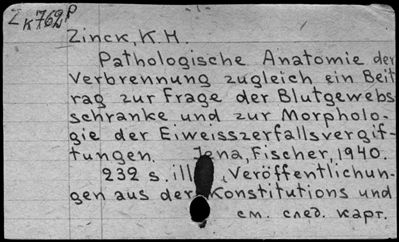 Z K762 P
Zinck, K.H.
Pathologische Anatomie der
Verbrennung zugleich ein Beit
rag zur Frage der Blutgewebs
schranke und zur Morpholo-
gie der Eiweisszerfallsvergif-
tungen. Jena, Fischer, 1940.
232 s. ill. Veröffentlichun-
gen aus der Konstitutions und
см. след. карт.